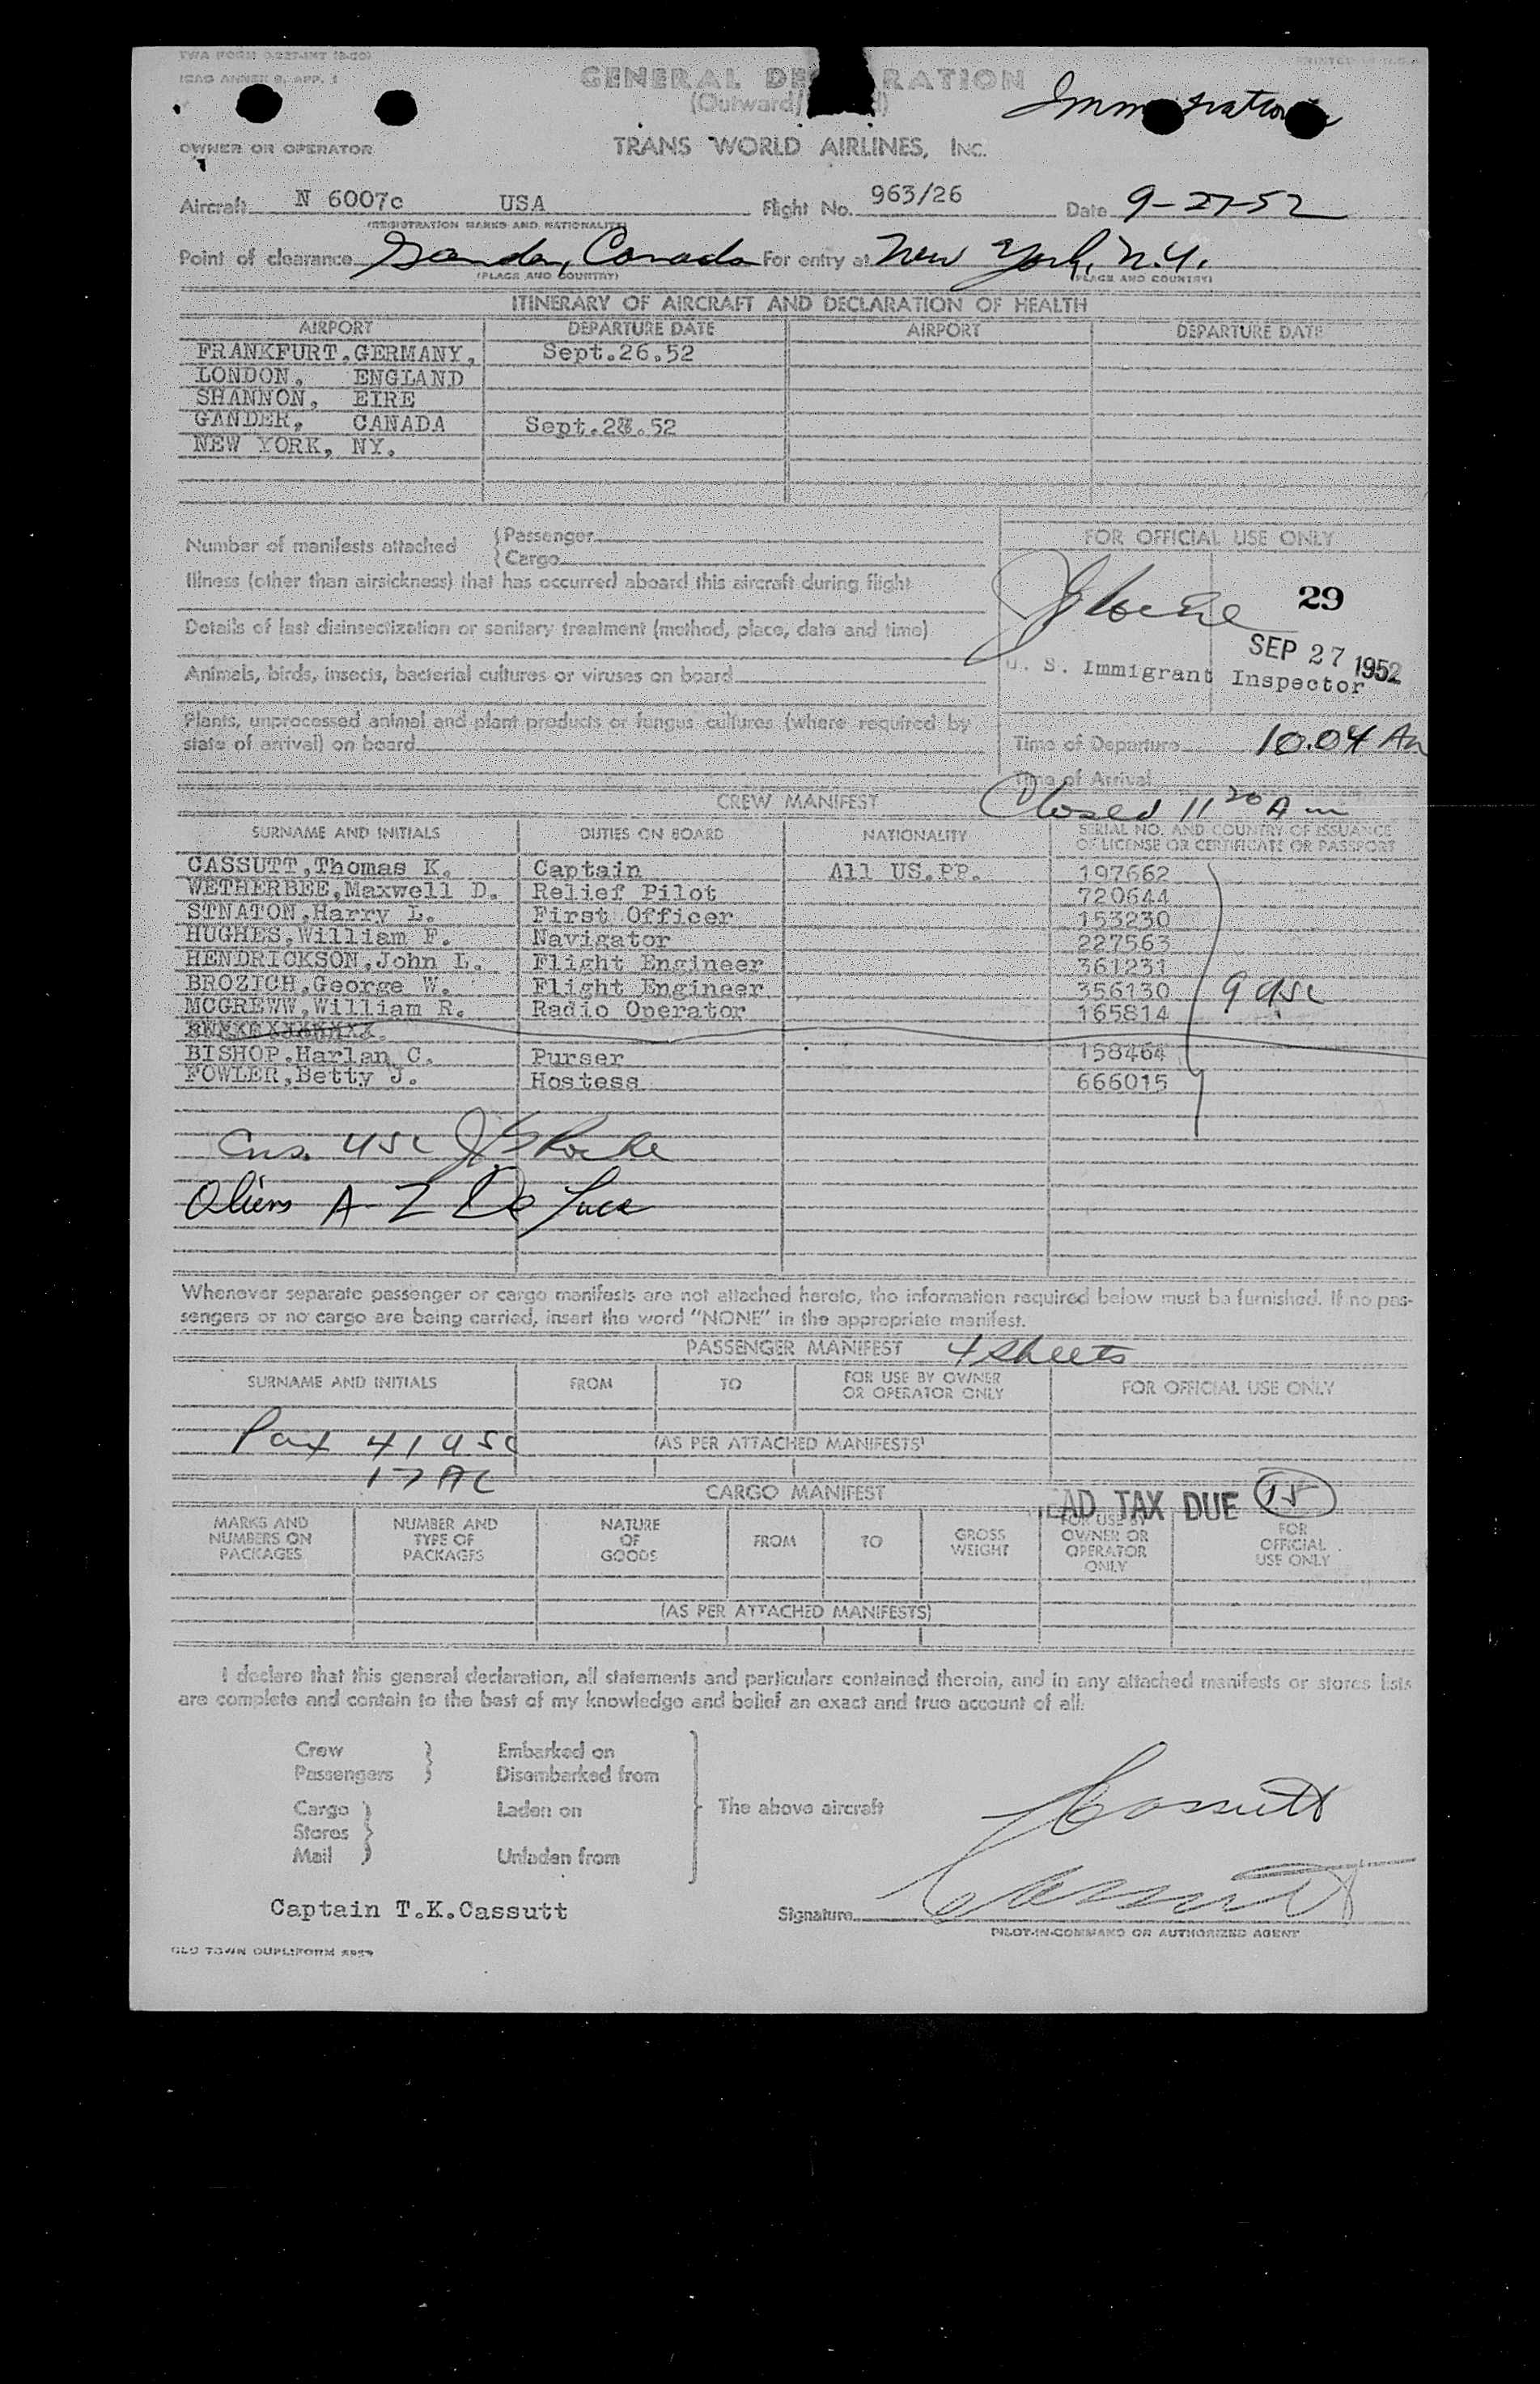 TWA FORM
ICAO ANNEX 9, APP. 1
GENERAL DE RATION
(Outward/
Immigration
OWNER OR OPERATOR
TRANS WORLD AIRLINES, INC.
Aircraft N 6007c USA Flight No. 963/26 Date 9-27-52
(REGISTRATION MARKS AND NATIONALITY)
Point of clearance Gander, Canada For entry at New York, N.Y.
(PLACE AND COUNTRY) (PLACE AND COUNTRY)
ITINERARY OF AIRCRAFT AND DECLARATION OF HEALTH
AIRPORT DEPARTURE DATE AIRPORT DEPARTURE DATE
FRANKFURT,GERMANY, Sept.26.52
LONDON, ENGLAND
SHANNON, EIRE
GANDER, CANADA Sept. .52
NEW YORK, NY.
Number of manifests attached {Passenger
{Cargo
FOR OFFICIAL USE ONLY
Illness (other than airsickness) that has occurred aboard this aircraft during flight
29
Details of last disinsectization or sanitary treatment (method, place, date and time)
SEP 27 1952
U. S. Immigrant Inspector
Animals, birds, insects, bacterial cultures or viruses on board
Plants, unprocessed animal and plant products or fungus cultures (where required by
state of arrival) on board
Time of Departure 10.04 Am
Time of Arrival
Closed 11 20 Am
CREW MANIFEST
SURNAME AND INITIALS DUTIES ON BOARD NATIONALITY SERIAL NO. AND COUNTRY OF ISSUANCE
OF LICENSE OR CERTIFICATE OR PASSPORT
CASSUTT,Thomas K. Captain All US.PP. 197662
WETHERBEE,Maxwell D. Relief Pilot 720644
STNATON,Harry L. First Officer 153230
HUGHES,William F. Navigator 227563
HENDRICKSON,John L. Flight Engineer 361231
BROZICH,George W. Flight Engineer 356130 9 usc
MCGREWW,William R. Radio Operator 165814
BISHOP.Harlan C. Purser 158464
FOWLER,Betty J. Hostess 666015
Cus. USC
Aliens A-Z De Luca
Whenever separate passenger or cargo manifests are not attached hereto, the information required below must be furnished. If no pas-
sengers or no cargo are being carried, insert the word "NONE" in the appropriate manifest.
PASSENGER MANIFEST 4 sheets
SURNAME AND INITIALS FROM TO FOR USE BY OWNER
OR OPERATOR ONLY FOR OFFICIAL USE ONLY
Pax 41 USC (AS PER ATTACHED MANIFESTS)
17 AC
CARGO MANIFEST
EAD TAX DUE 15
MARKS AND
NUMBERS ON
PACKAGES
NUMBER AND
TYPE OF
PACKAGES
NATURE
OF
GOODS
FROM TO GROSS
WEIGHT
FOR USE BY
OWNER OR
OPERATOR
ONLY
FOR
OFFICIAL
USE ONLY
(AS PER ATTACHED MANIFESTS)
I declare that this general declaration, all statements and particulars contained therein, and in any attached manifests or stores lists
are complete and contain to the best of my knowledge and belief an exact and true account of all:
Crew } Embarked on
Passengers } Disembarked from
Cargo } Laden on } The above aircraft Cassutt
Stores }
Mail } Unladen from
Captain T.K.Cassutt
Signature Cassutt
PILOT-IN-COMMAND OR AUTHORIZED AGENT
OLD TOWN DUPLIFORM